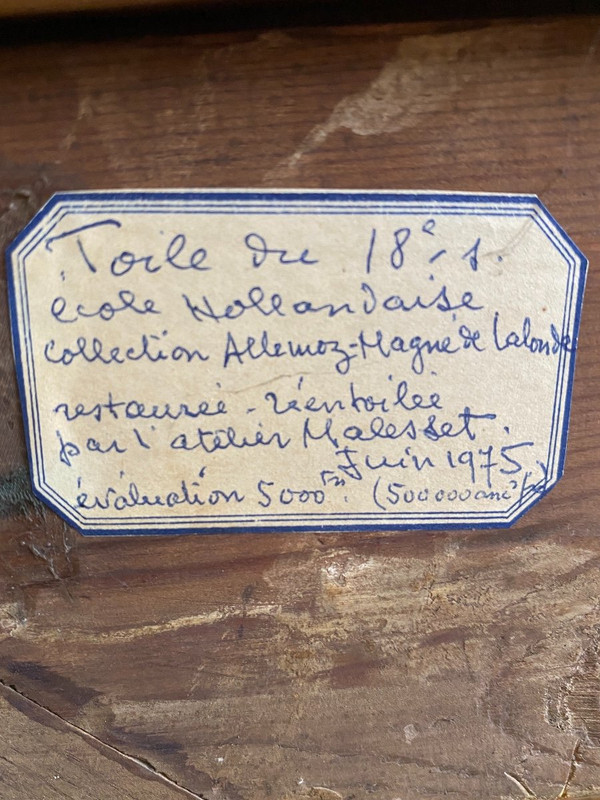 Toile du 18e. s.
école Hollandaise
Collection Allemoz-Magné de Lalonde
restaurée - réentoilée
par l'atelier Malesset.
Juin 1975.
évaluation 5000 Frs. (500 000 anc